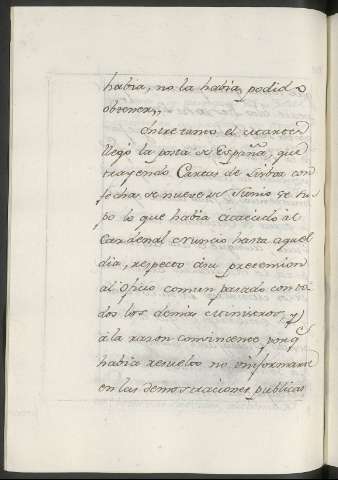 habia, no la habia podido
obtener,,
Entretanto el
llegó la posta de España, que
trayendo Cartas de Lisboa con
fecha de nueve de Junio se su-
po lo que habia acaecido al
Cardenal Nuncio hasta aquel
dia, respecto à su pretension
al Oficio comun pasado con to-
dos los demas Ministros, y
à la razon convincente porq.e
habia resuelto no uniformarse
en las demostraciones publicas